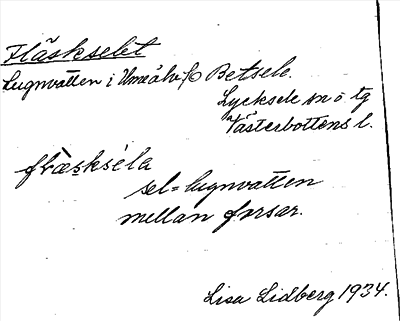 Fläskselet
Lugnvatten i Umeälv f. Betsele.
Lycksele sn o tg
Västerbottens l.
flæ̀sksé̀la
sel = lugnvatten
mellan forsar.
Lisa Lidberg 1934.